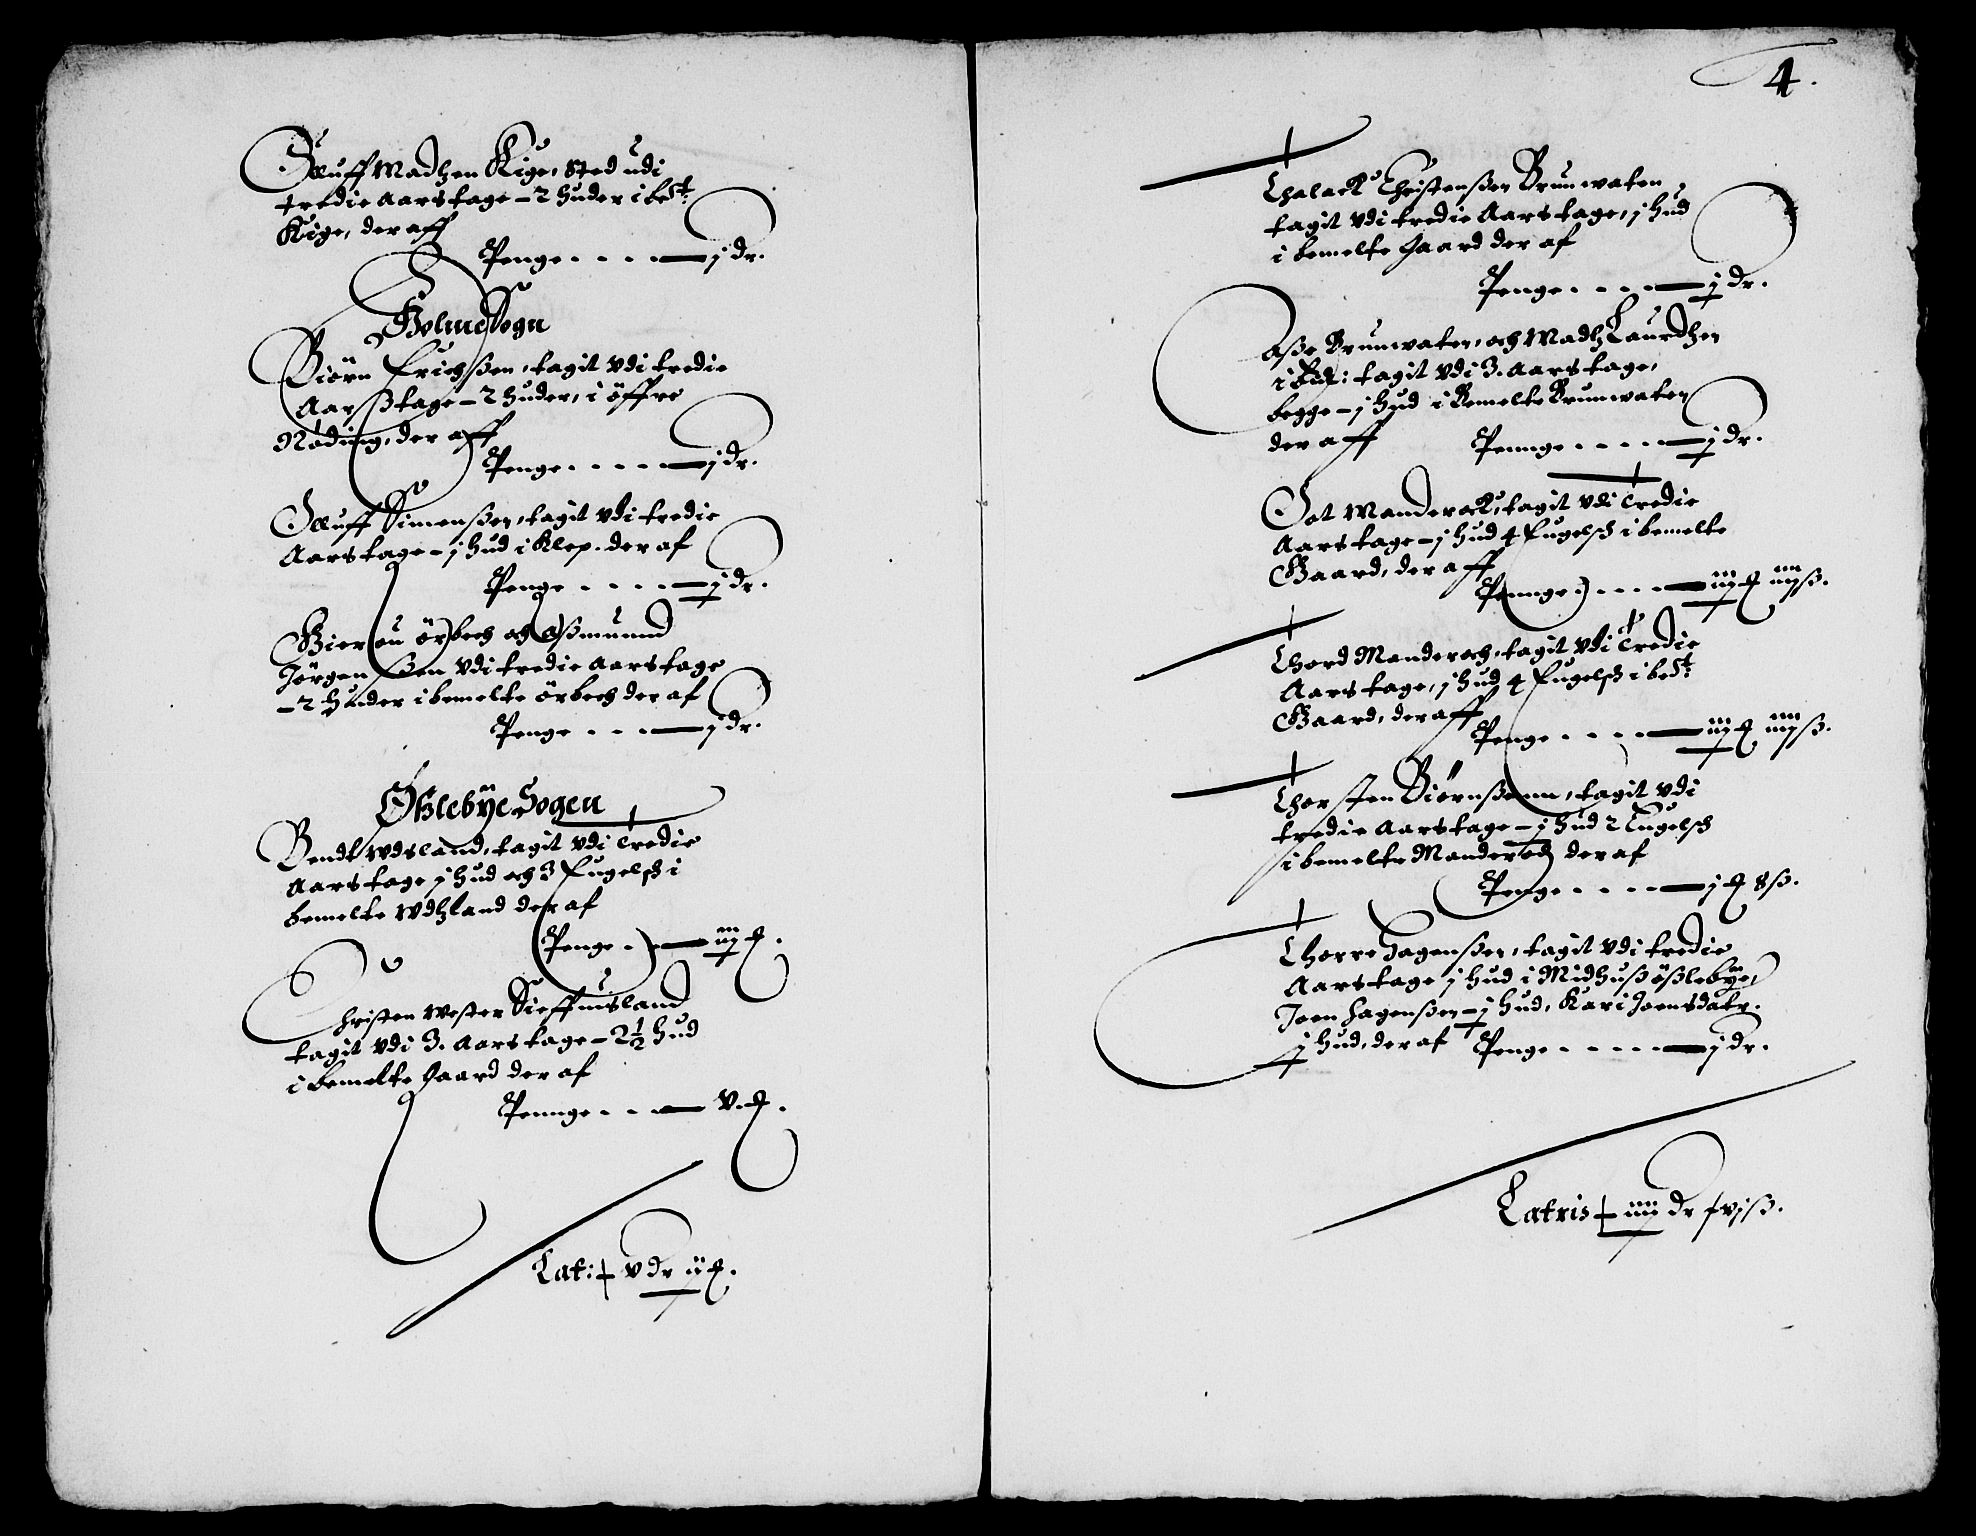 Oluff Madtzen Kige, Sted udi
tredie Aars tage – 2 huder i bedt:
Kige, der aff
Penge . . . . — j dr.
Holme Sogn
Biörn Erichßen, tagit vdi tredie
Aarß tage – 2 huder, i öffre
Nöding, der aff
Penge . . . . . — j dr.
Oluff Simenßen, tagit vdi tredie
Aars tage – j hud i Klep. der af
Penge . . . . — j dr.
Biörou örbech och Aßmuund
Jörgenßen vdi tredie Aars tage
– 2 huder i bemelte örbech der af
Penge . . . — j dr.
Ößlebye Sogen
Bendt Wdsland, tagit vdi tredie
Aars tage j hud och 3 Engelsk i
bemelte Wdtzland der af
Penge . . — iij
Christen Wester
tagit vdi 3. Aars tage – 2½ hud
i bemelte Gaard der af
Pennge . . . — v
Lat: v dr ij
4.
Thalack Christenßen Brunwaten
tagit vdi tredie Aars tage, j hud
i bemelte Gaard der af
Penge . . . . — j dr.
Aße Brunwaten, och Madtz Lauridtzen
i tagit vdi 3. Aars tage,
begge – j hud i Bemelte Brunwaten
der aff Pennge . . . . — j dr.
Oot Manderock, tagit vdi tredie
Aars tage – j hud 4 Engelsk i bemelte
Gaard, der aff
Pennge . . . . — iij iiij ß.
Thord Manderoch, tagit vdi tredie
Aars tage, j hud 4 Engelsk i bedt:
Gaard, der aff
Penge . . . . — iij iiij ß.
Thorsten Biörnßenn, tagit vdi
tredie Aars tage – j hud 2 Engelsk
i bemelte Manderoch der af
Penge . . . . — j 8 ß.
Thorre Hagenßen, tagit vdi tredie
Aars tage j hud i Midhuß ößlebye,
Joen Hagenßen – j hud, Kari Joensdatr.
j hud, der af Penge . . . . . — j dr.
Latris iiij dr xvj ß.